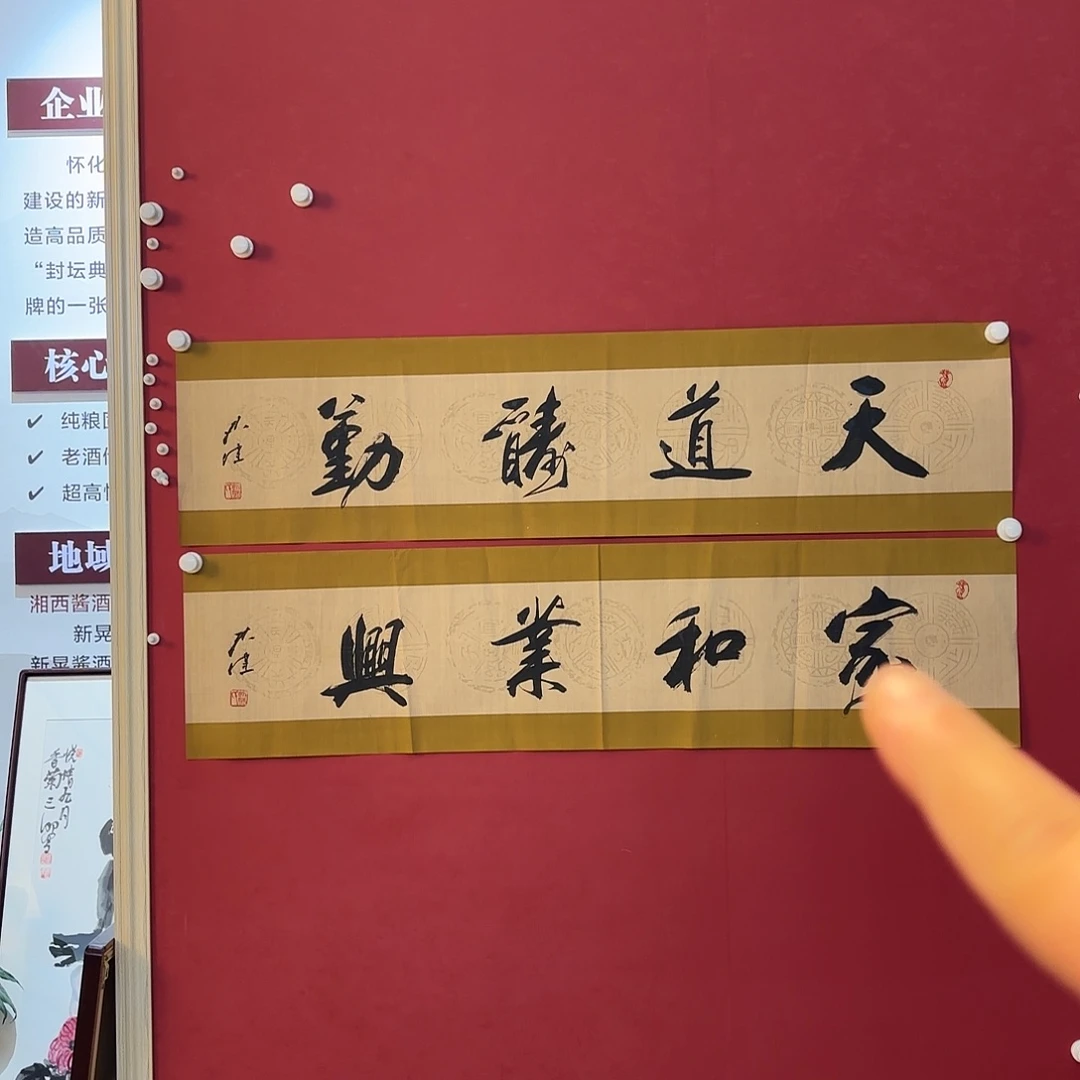 天道酬勤
家和業興
企业
怀化
建设的新
造高品质
“封坛典
牌的一张
核心
✔ 纯粮固
✔ 老酒
✔ 超高
地域
湘西酱酒
新晃
新晃酱酒